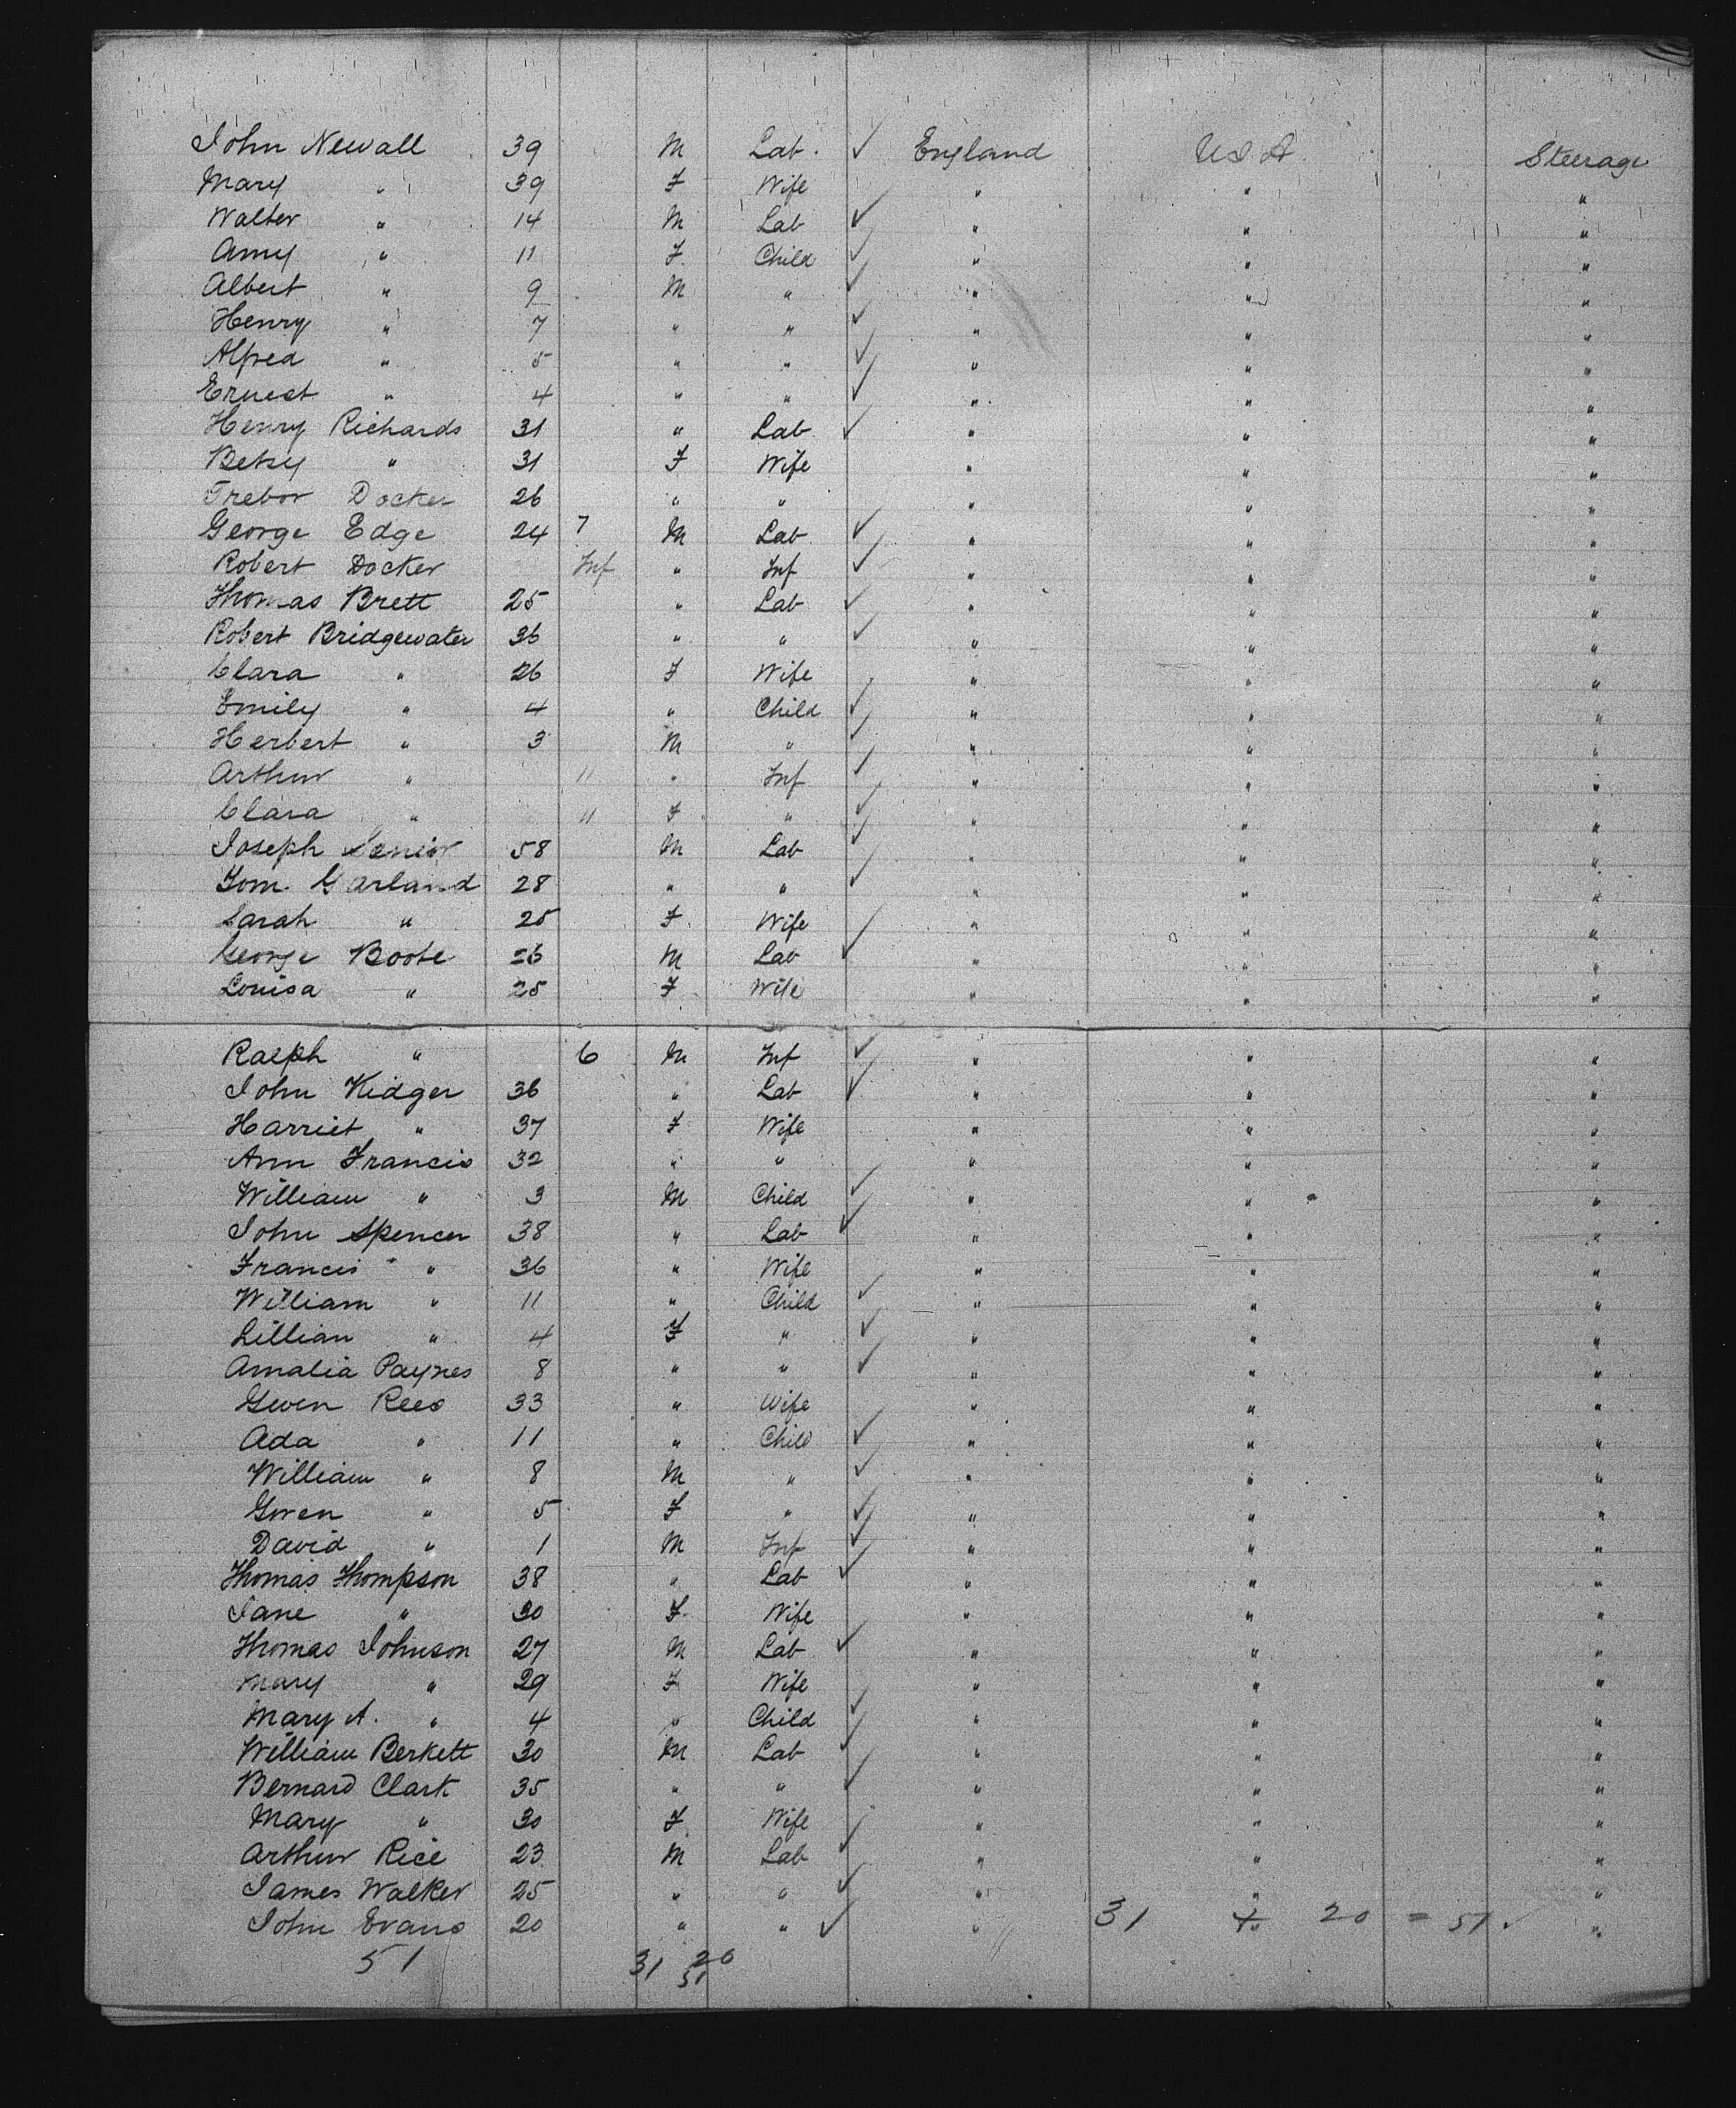 John Newall 39 M Lab. ✓ England USA Steerage
Mary " 39 F Wife " " "
Walter " 14 M Lab ✓ " " "
Amy " 11 F. Child ✓ " " "
Albert " 9 M " ✓ " " "
Henry " 7 " " ✓ " " "
Alfred " 5 " " ✓ " " "
Ernest " 4 " " ✓ " " "
Henry Richards 31 " Lab ✓ " " "
Betsy " 31 F Wife " " "
Trebor Docker 26 " " " " "
George Edge 24 7 M Lab ✓ " " "
Robert Docker Inf " Inf ✓ " " "
Thomas Brett 25 " Lab ✓ " " "
Robert Bridgewater 36 " " ✓ " " "
Clara " 26 F Wife " " "
Emily " 4 " Child ✓ " " "
Herbert " 3 M " ✓ " " "
Arthur " 11 " Inf ✓ " " "
Clara " 11 F " ✓ " " "
Joseph Senior 58 M Lab ✓ " " "
Tom. Garland 28 " " ✓ " " "
Sarah " 25 F Wife " " "
George Boote 26 M Lab ✓ " " "
Louisa " 25 F Wife " " "
Ralph " 6 M Inf ✓ " " "
John Kidger 36 " Lab ✓ " " "
Harriet " 37 F Wife " " "
Ann Francis 32 " " " " "
William " 3 M Child ✓ " " "
John Spencer 38 " Lab ✓ " " "
Francis " 36 " Wife " " "
William " 11 " Child ✓ " " "
Lillian " 4 F " ✓ " " "
Amalia Paynes 8 " " ✓ " " "
Gwen Rees 33 " Wife " " "
Ada " 11 " Child ✓ " " "
William " 8 M " ✓ " " "
Gwen " 5 F " ✓ " " "
David " 1 M Inf ✓ " " "
Thomas Thompson 38 " Lab ✓ " " "
Jane " 30 F. Wife " " "
Thomas Johnson 27 M Lab ✓ " " "
Mary " 29 F Wife " " "
Mary A. " 4 " Child ✓ " " "
William Berkett 30 M Lab ✓ " " "
Bernard Clark 35 " " ✓ " " "
Mary " 30 F Wife " " "
Arthur Rice 23 M Lab ✓ " " "
James Walker 25 " " ✓ " " "
John Evans 20 " " ✓ " 31 + 20 = 51 ✓ "
51 31 20
51